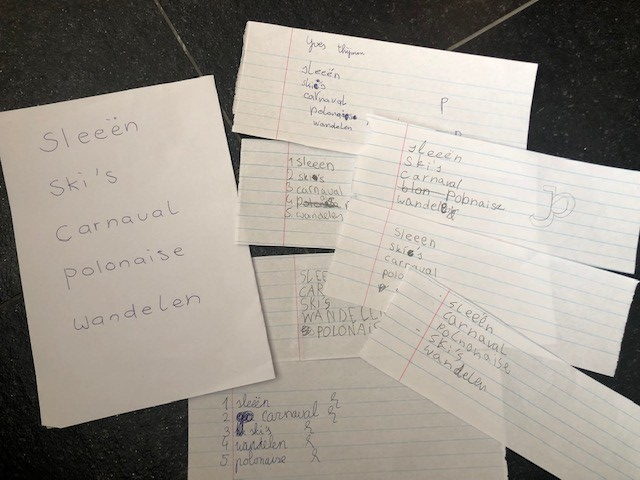 Sleeën
Ski's
Carnaval
Polonaise
Wandelen
Yves
sleeën
skis
carnaval
polonaise
wandelen
P
1 sleeën
2 skis
3 carnaval
4
5 wandelen
sleeën
Ski's
Carnaval
blon Polonaise
wandel
JP
sleeën
ski's
carnaval
polo
SLEE
CAR
SKI'S
WANDELE
POLONAIS
sleeën
carnaval
polnonaise
- ski's
wandelen
1 sleeën
2 carnaval
3 skis
4 wandelen
5 polonaise